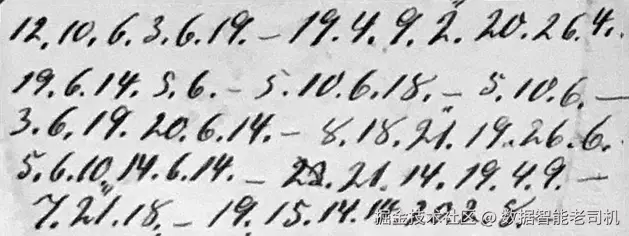 12.10.6.3.6.19. – 19.4.9.2̈. 20.26.4.
19.6.14.5.6. – 5.10.6.18. – 5.10.6. –
3.6.19.20.6.14. – 8.18.2̈1.19.26.6.
5.6.10.14.6.14. – 23.21.14.19.4.9. –
7.2̈1.18. – 19.15.14.14.20.2.8.
掘金技术社区 @ 数据智能老司机